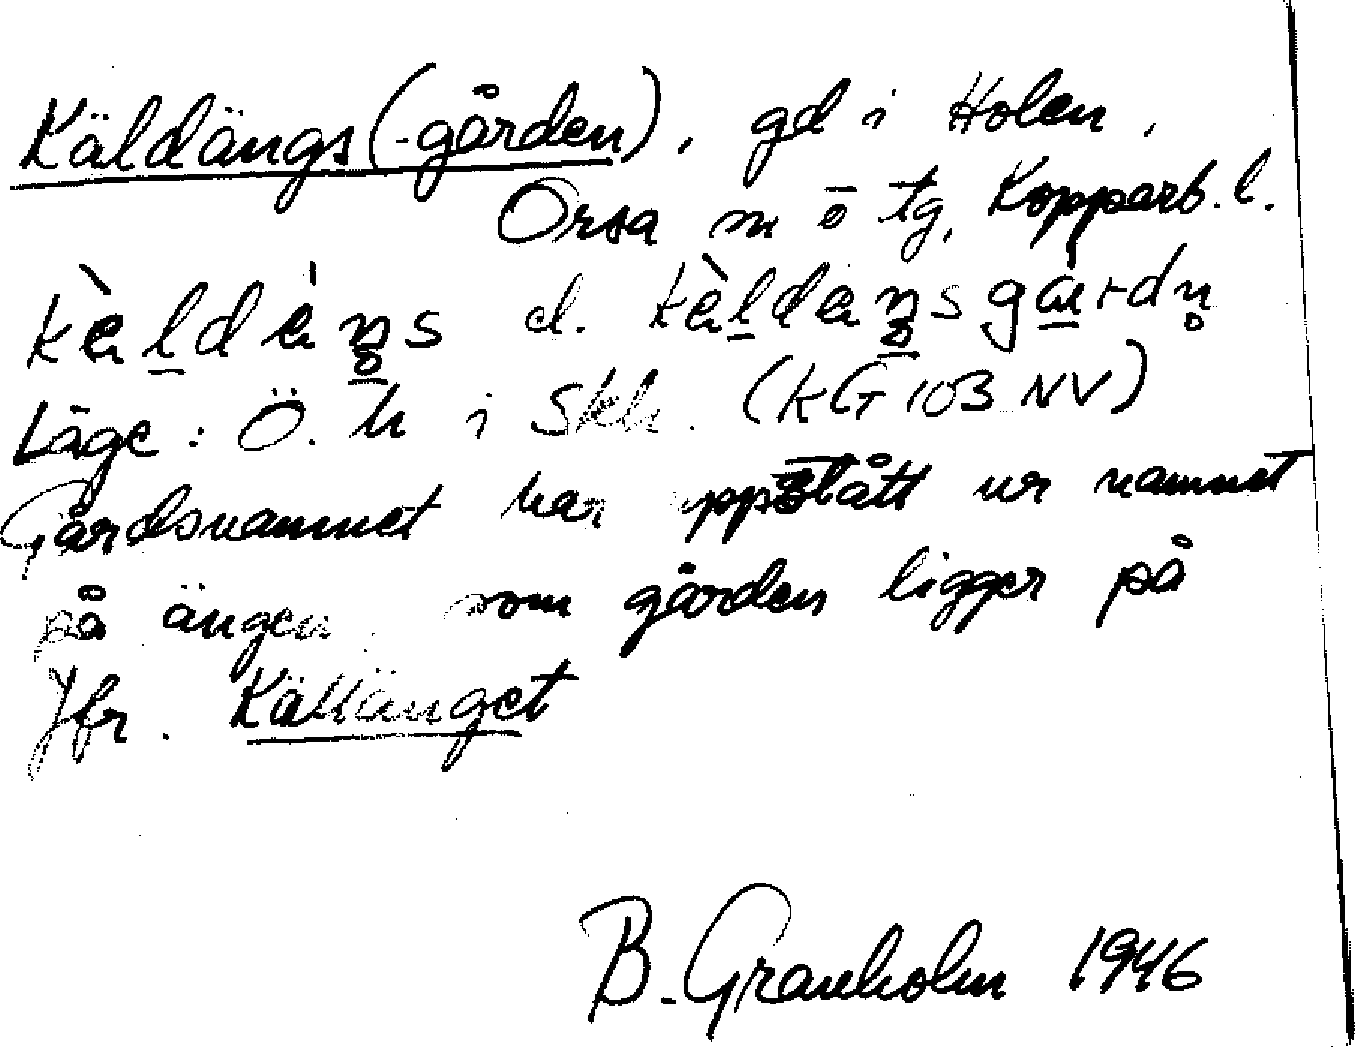 Käldängs(-gården), gd i Holen,
Orsa sn o tg, Kopparb. l.
kèldèŋs el. kèldaŋsgardn̥
Läge: Ö. h i Skh. (KG 103 NV)
Gårdsnamnet har uppstått ur namnet
på ängen som gården ligger på
Jfr. Källänget
B. Granholm 1946